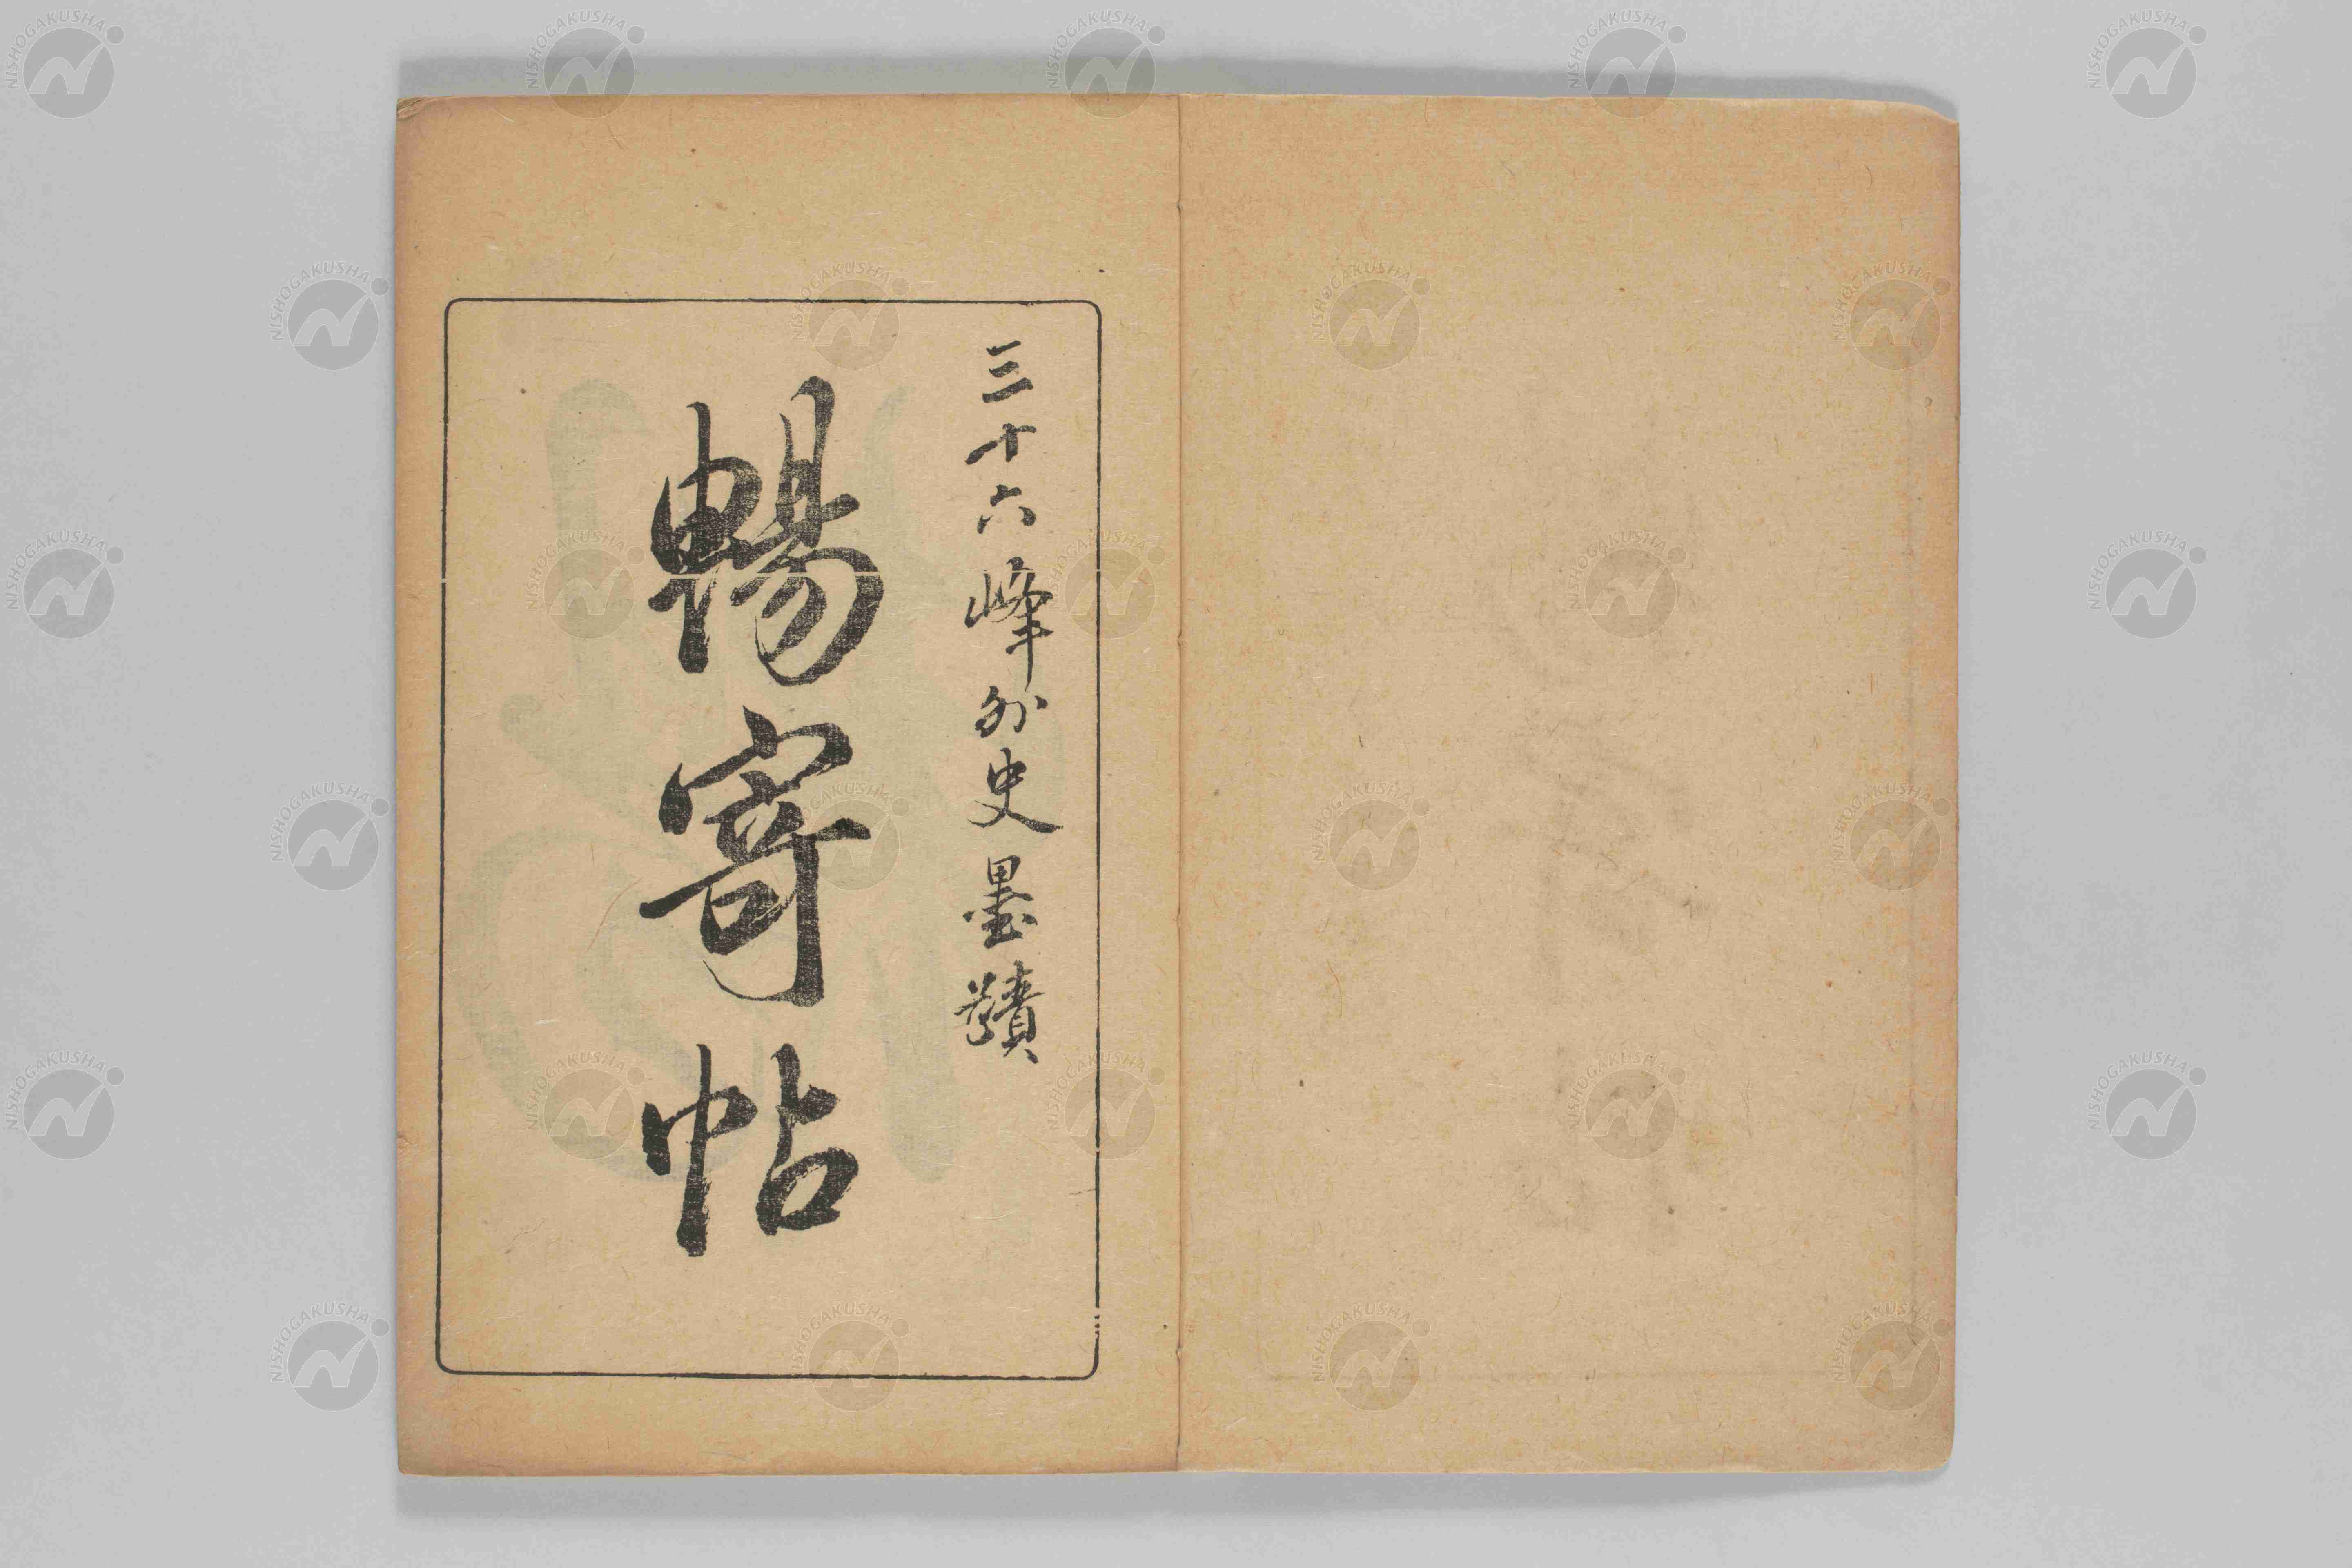 三十六峰外史墨蹟
暢寄帖
NISHOGAKUSHA